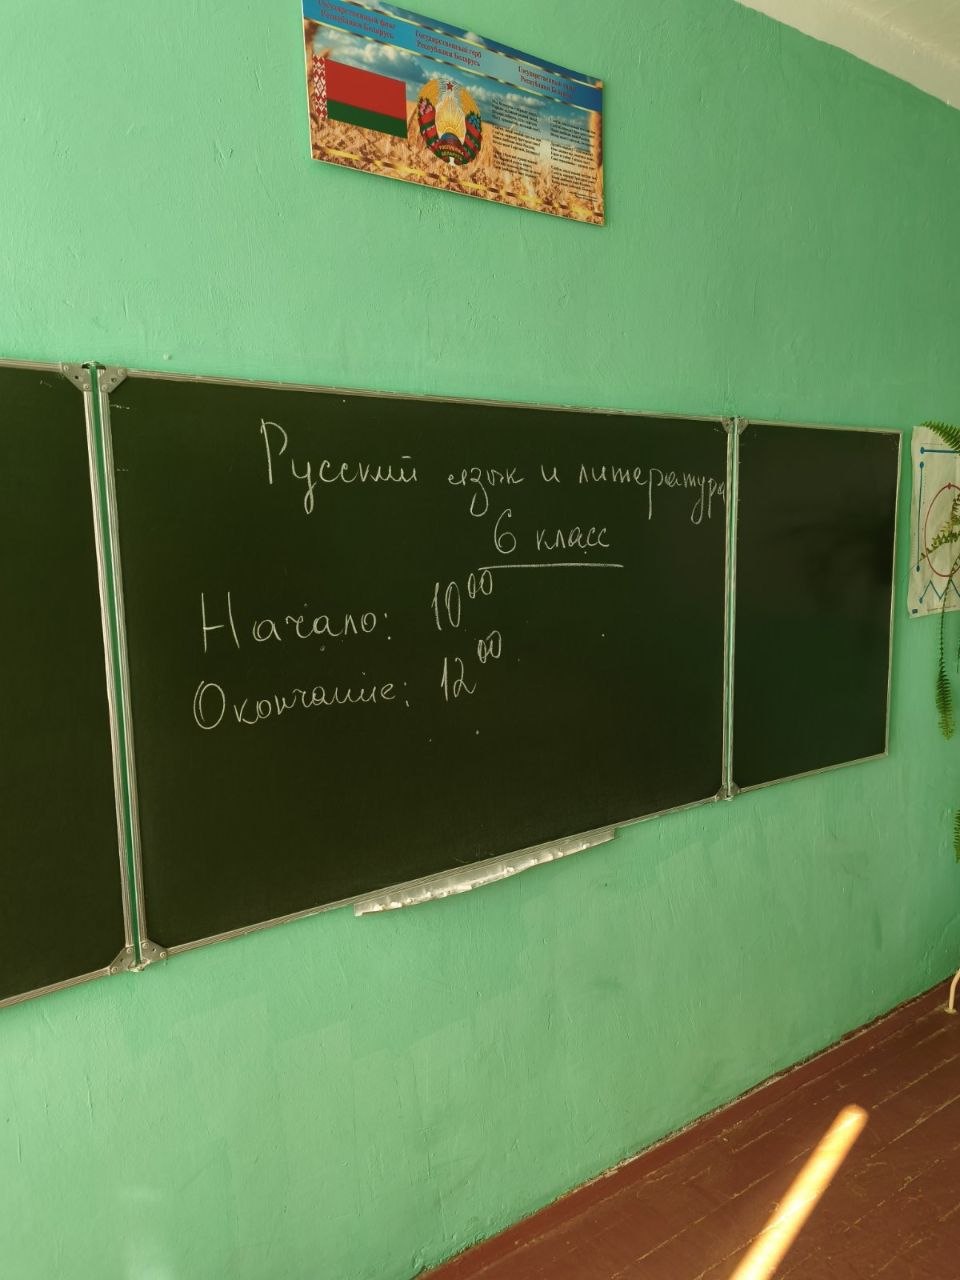 Государственный флаг
Республики Беларусь
Государственный герб
Республики Беларусь
Государственный гимн
Республики Беларусь
РЭСПУБЛІКА
БЕЛАРУСЬ
Русский язык и литература
6 класс
Начало: 10⁰⁰
Окончание: 12⁰⁰